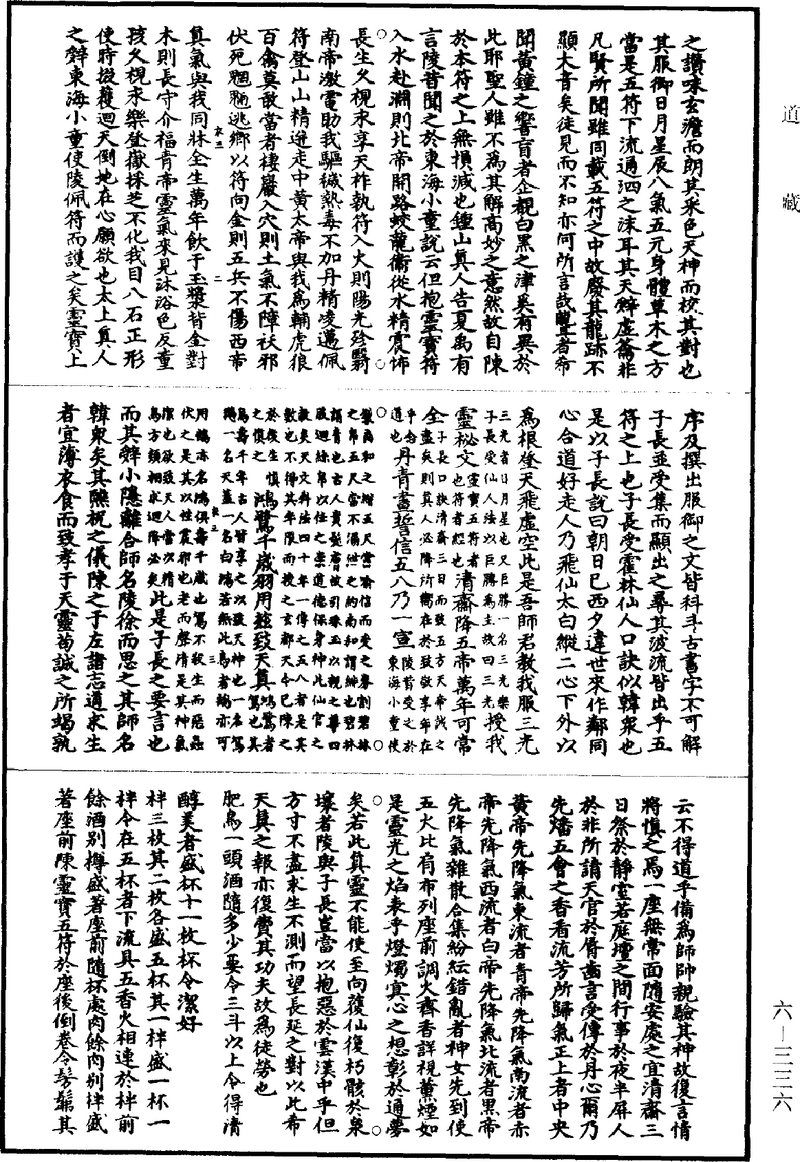 道藏
之讚味玄澹而朗其采色天神而校其對也
其服御日月星辰八氣五元身體草木之方
當是五符下流通泗之沫耳其天辭虛籥非
凡賢所聞雖同載五符之中故廢其龍跡不
顯大音矣徒見而不知亦何所言哉聾者希
聞黃鐘之響盲者企覩白黑之津奚有異於
此耶聖人雖不為其解高妙之意然故自陳
於本符之上無損減也鍾山真人告夏禹有
言陵昔聞之於東海小童說云但抱靈寶符
入水赴淵則北帝開路蛟龍衛從水精震怖
長生久視永享天祚執符入火則陽光殄翳
南帝激電助我驅穢熱毒不加丹精凌邁佩
符登山山精迸走中黃太帝與我為輔虎狼
百禽莫敢當者棲巖入穴則土氣不障祅邪
伏死魍魎逃鄉以符向金則五兵不傷西帝
真氣與我同牀全生萬年飲于玉漿皆金對
木則長守介福青帝靈氣來見沐浴色反童
孩久視永樂登嶽採芝不化我目八石正形
使時掇穫迴天倒地在心願欲也太上真人
之辭東海小童使陵佩符而護之矣靈寶上
序及撰出服御之文皆科斗古書字不可解
子長並受集而顯出之尋其波流皆出乎五
符之上也子長受霍林仙人口訣似韓眾也
是以子長說曰朝日已西夕違世來作鄰同
心合道好走人乃飛仙太白縱二心下外以
為根登天飛虛空此是吾師君教我服三光
三光者日月星也又巨勝一名三光樂子長受仙人法以巨勝為主故曰三光授我
靈祕文靈寶五符者也符者經也清齋降五帝萬年可常
全子長口訣清齋三日而致五方天帝矣之盡矣則真人必降所嚮在於致敬享年在乎念道也丹青畫誓信五八乃一宣陵昔受之於東海小童使
鴻鷺千歲羽用鉉致天真
此是子長之要言也
而其辭小隱離合師名陵徐而思之其師名
韓眾矣其醮祝之儀陳之于左諸志道求生
者宜薄衣食而致孝于天靈苟誠之所竭孰
云不得道乎備為師師親驗其神故復言情
將慎之焉一座無常面隨安處之宜清齋三
日祭於靜室若庭壇之間行事於夜半屏人
於非所請天官於脣齒言受傳於丹心爾乃
先燔五會之香香流芳所歸氣正上者中央
黃帝先降氣東流者青帝先降氣南流者赤
帝先降氣西流者白帝先降氣北流者黑帝
先降氣雜散合集紛紜錯亂者神女先到使
五火比肩布列座前調火齊香詳視薰煙如
是靈光之焰表乎燈燭冥心之想彰於通夢
矣若此真靈不能使至向復仙復朽骸於泉
壤者陵與子長豈當以抱惡於雲漢中乎但
方寸不盡求生不測而望長延之對以此希
天真之報亦復費其功夫故為徒勞也
肥鳥一頭酒隨多少要令三斗以上令得清
醇美者盛杯十一枚杯令潔好
柈三枚其二枚各盛五杯其一柈盛一杯一
柈令在五杯者下流具五香火相連於柈前
餘酒別樽盛著座前隨杯處肉餘肉別柈盛
著座前陳靈寶五符於座後倒卷令髣髴其
六一三三六